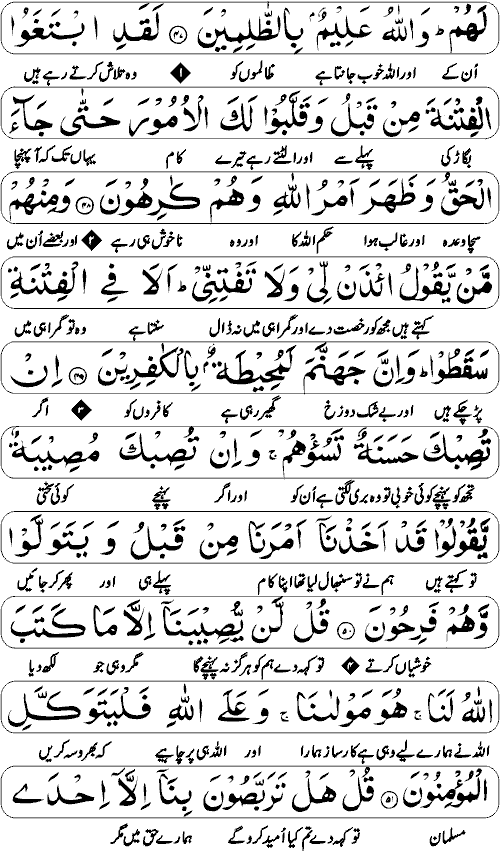 لَهُمْ ؕ وَاللّٰهُ عَلِيْمٌۢ بِالظّٰلِمِيْنَ ﴿۴۷﴾ لَقَدِ ابْتَغَوُا
اُن کے اور اللہ خوب جانتا ہے ظالموں کو ۱ وہ تلاش کرتے رہے ہیں
الْفِتْنَةَ مِنْ قَبْلُ وَقَلَّبُوْا لَكَ الْاُمُوْرَ حَتّٰى جَآءَ
بگاڑ کی پہلے سے اور الٹتے رہے تیرے کام یہاں تک کہ آ پہنچا
الْحَقُّ وَظَهَرَ اَمْرُ اللّٰهِ وَهُمْ كٰرِهُوْنَ ﴿۴۸﴾ وَمِنْهُمْ
سچا وعدہ اور غالب ہوا حکم اللہ کا اور وہ ناخوش ہی رہے ۲ اور بعضے اُن میں
مَّنْ يَّقُوْلُ ائْذَنْ لِّىْ وَلَا تَفْتِنِّىْ ؕ اَلَا فِى الْفِتْنَةِ
کہتے ہیں مجھ کو رخصت دے اور گمراہی میں نہ ڈال سنتا ہے وہ تو گمراہی میں
سَقَطُوْا ؕ وَاِنَّ جَهَنَّمَ لَمُحِيْطَةٌۢ بِالْكٰفِرِيْنَ ﴿۴۹﴾ اِنْ
پڑ چکے ہیں اور بے شک دوزخ گھیر رہی ہے کافروں کو ۳ اگر
تُصِبْكَ حَسَنَةٌ تَسُؤْهُمْ ۚ وَاِنْ تُصِبْكَ مُصِيْبَةٌ
تجھ کو پہنچے کوئی خوبی تو وہ بری لگتی ہے اُن کو اور اگر پہنچے کوئی سختی
يَّقُوْلُوْا قَدْ اَخَذْنَاۤ اَمْرَنَا مِنْ قَبْلُ وَيَتَوَلَّوْا
تو کہتے ہیں ہم نے تو سنبھال لیا تھا اپنا کام پہلے ہی اور پھر کر جائیں
وَّهُمْ فَرِحُوْنَ ﴿۵۰﴾ قُلْ لَّنْ يُّصِيْبَنَاۤ اِلَّا مَا كَتَبَ
خوشیاں کرتے ۴ تو کہہ دے ہم کو ہرگز نہ پہنچے گا مگر وہی جو لکھ دیا
اللّٰهُ لَنَا ۚ هُوَ مَوْلٰىنَا ۚ وَعَلَى اللّٰهِ فَلْيَتَوَكَّلِ
اللہ نے ہمارے لیے وہی ہے کارساز ہمارا اور اللہ ہی پر چاہیے کہ بھروسہ کریں
الْمُؤْمِنُوْنَ ﴿۵۱﴾ قُلْ هَلْ تَرَبَّصُوْنَ بِنَاۤ اِلَّاۤ اِحْدَى
مسلمان تو کہہ دے تم کیا اُمید کرو گے ہمارے حق میں مگر